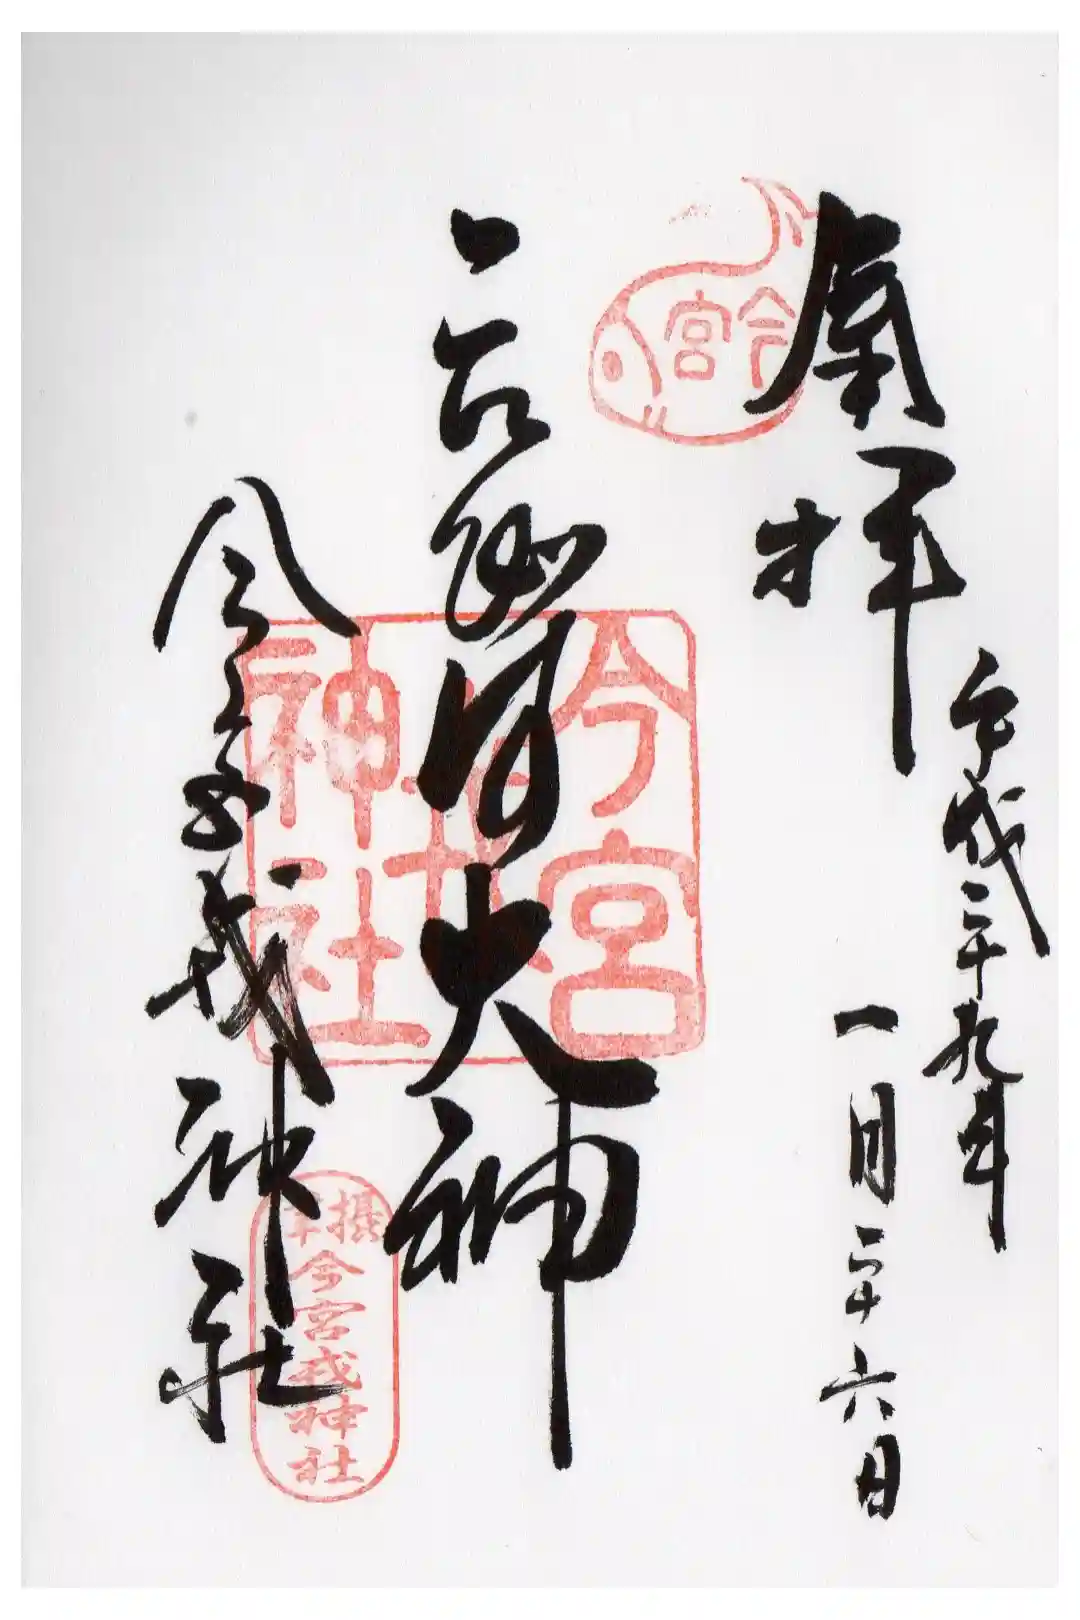 奉拝
今宮
平成二十九年
一月二十六日
大神
今宮戎神社
今宮戎神社
摂津
今宮戎神社